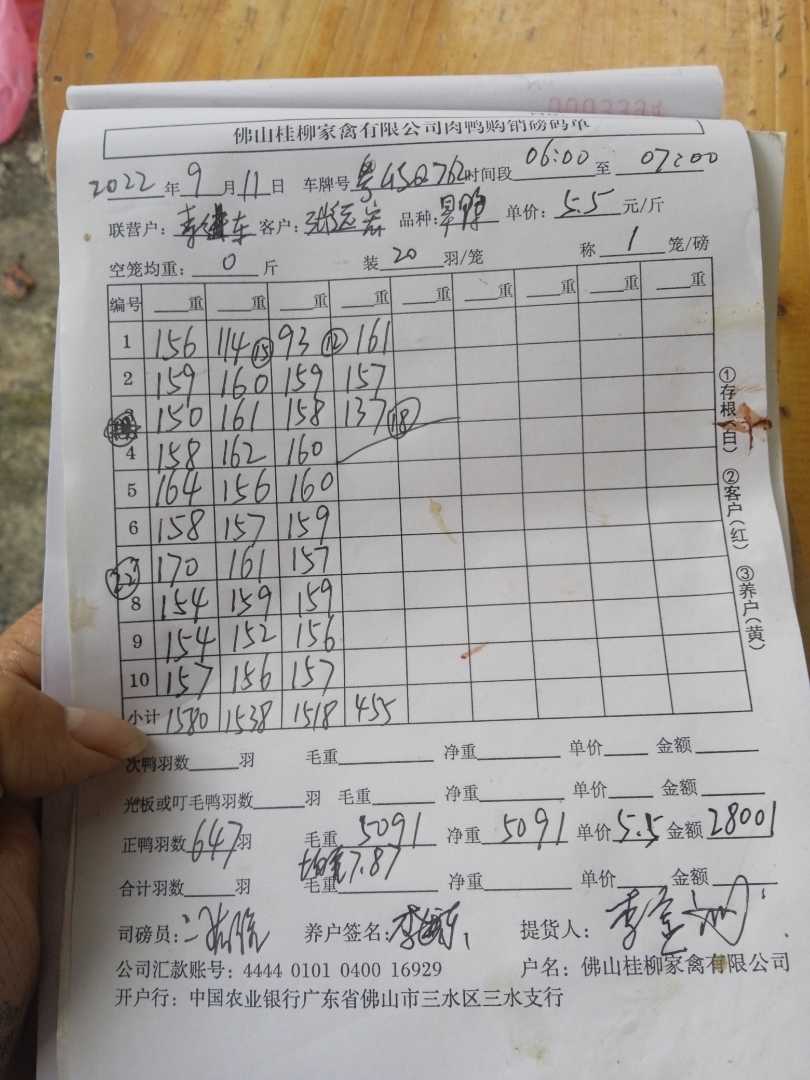 佛山桂柳家禽有限公司肉鸭购销磅码单
2022 年 9 月 11 日 车牌号 粤G5Q762 时间段 06:00 至 07:00
联营户: 客户: 品种: 旱鸭 单价: 5.5 元/斤
空笼均重: 0 斤 装 20 羽/笼 称 1 笼/磅
编号 重 重 重 重 重 重 重 重 重
1 156 114 ⑮ 93 ⑫ 161
2 159 160 159 157
150 161 158 137 ⑱
4 158 162 160
5 164 156 160
6 158 157 159
㉒ 170 161 157
8 154 159 159
9 154 152 156
10 157 156 157
小计 1580 1538 1518 455
①存根(白) ②客户(红) ③养户(黄)
次鸭羽数 羽 毛重 净重 单价 金额
光板或叮毛鸭羽数 羽 毛重 净重 单价 金额
正鸭羽数 647 羽 毛重 5091 净重 5091 单价 5.5 金额 28001
均重7.87
合计羽数 羽 毛重 净重 单价 金额
司磅员: 养户签名: 提货人:
公司汇款账号: 4444 0101 0400 16929 户名: 佛山桂柳家禽有限公司
开户行: 中国农业银行广东省佛山市三水区三水支行